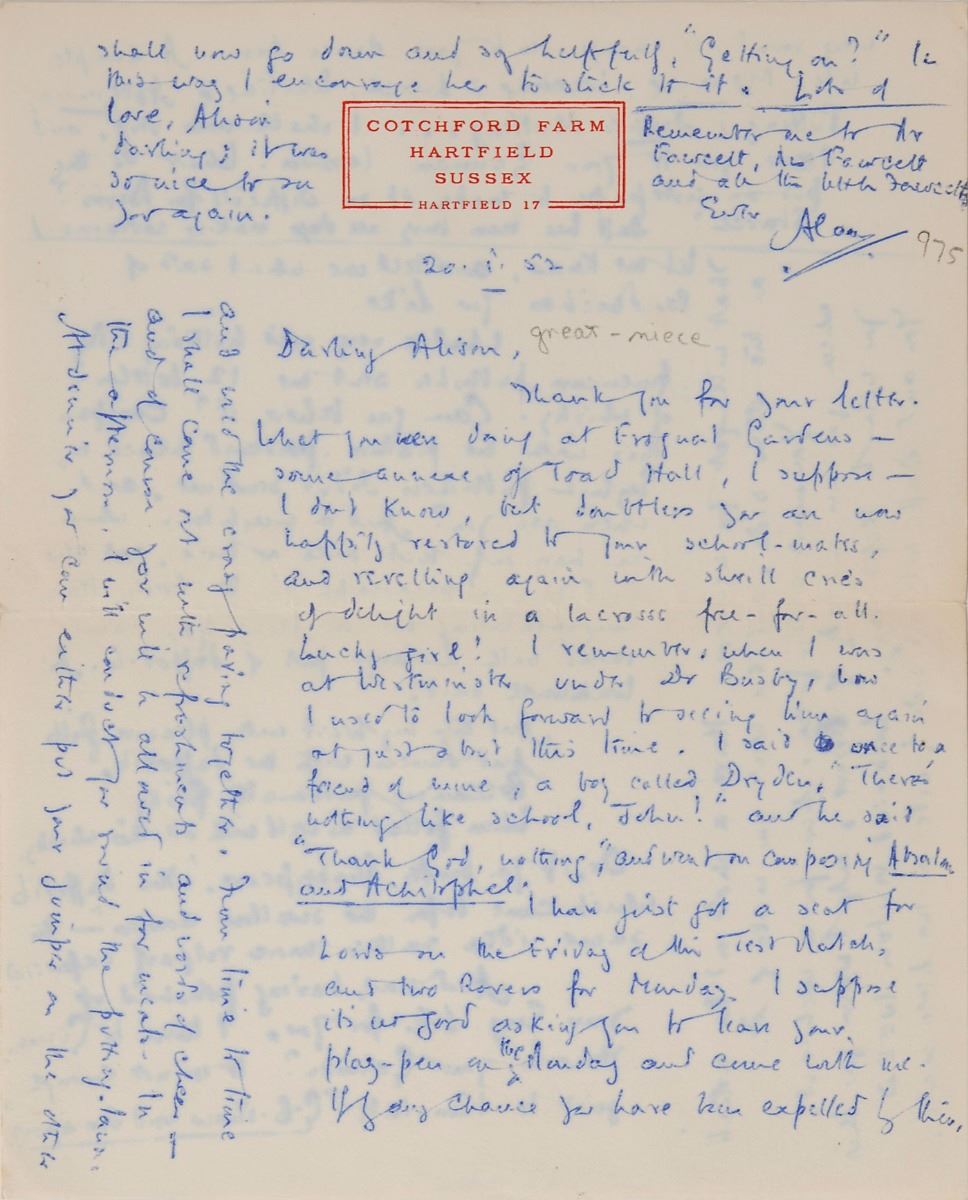 COTCHFORD FARM
HARTFIELD
SUSSEX
HARTFIELD 17
20. i. 52
Darling Alison,
great-niece
Thank you for your letter.
What you were doing at Frognal Gardens –
some annexe of Toad Hall, I suppose –
I don't know, but doubtless you are now
happily restored to your school-mates,
and revelling again with shrill cries
of delight in a lacrosse free-for-all.
Lucky girl! I remember, when I was
at Westminster under Dr Busby, how
I used to look forward to seeing him again
at just about this time. I said once to a
friend of mine, a boy called Dryden, "There's
nothing like school, John!" and he said
"Thank God, nothing," and went on composing Absalom
and Achitophel.
I have just got a seat for
Lords on the Friday of the Test Match,
and two Rovers for Monday. I suppose
it's no good asking you to leave your
play-pen on the Monday and come with me.
If by any chance you have been expelled by then,
and used the crazy paving together. From time to time
I shall come out with refreshments and words of cheer –
and of course you will be allowed in for meals. In
the afternoon I will conduct you round the putting-lawn.
At dinner you can either put your jumper on the other
shall now go down and say helpfully, "Getting on?" In
this way I encourage her to stick to it. Lots of
love, Alison
darling; it was
so nice to see
you again.
Remember me to Dr
Fawcett, Mrs Fawcett
and all the little Fawcetts
Ever
Alan
975